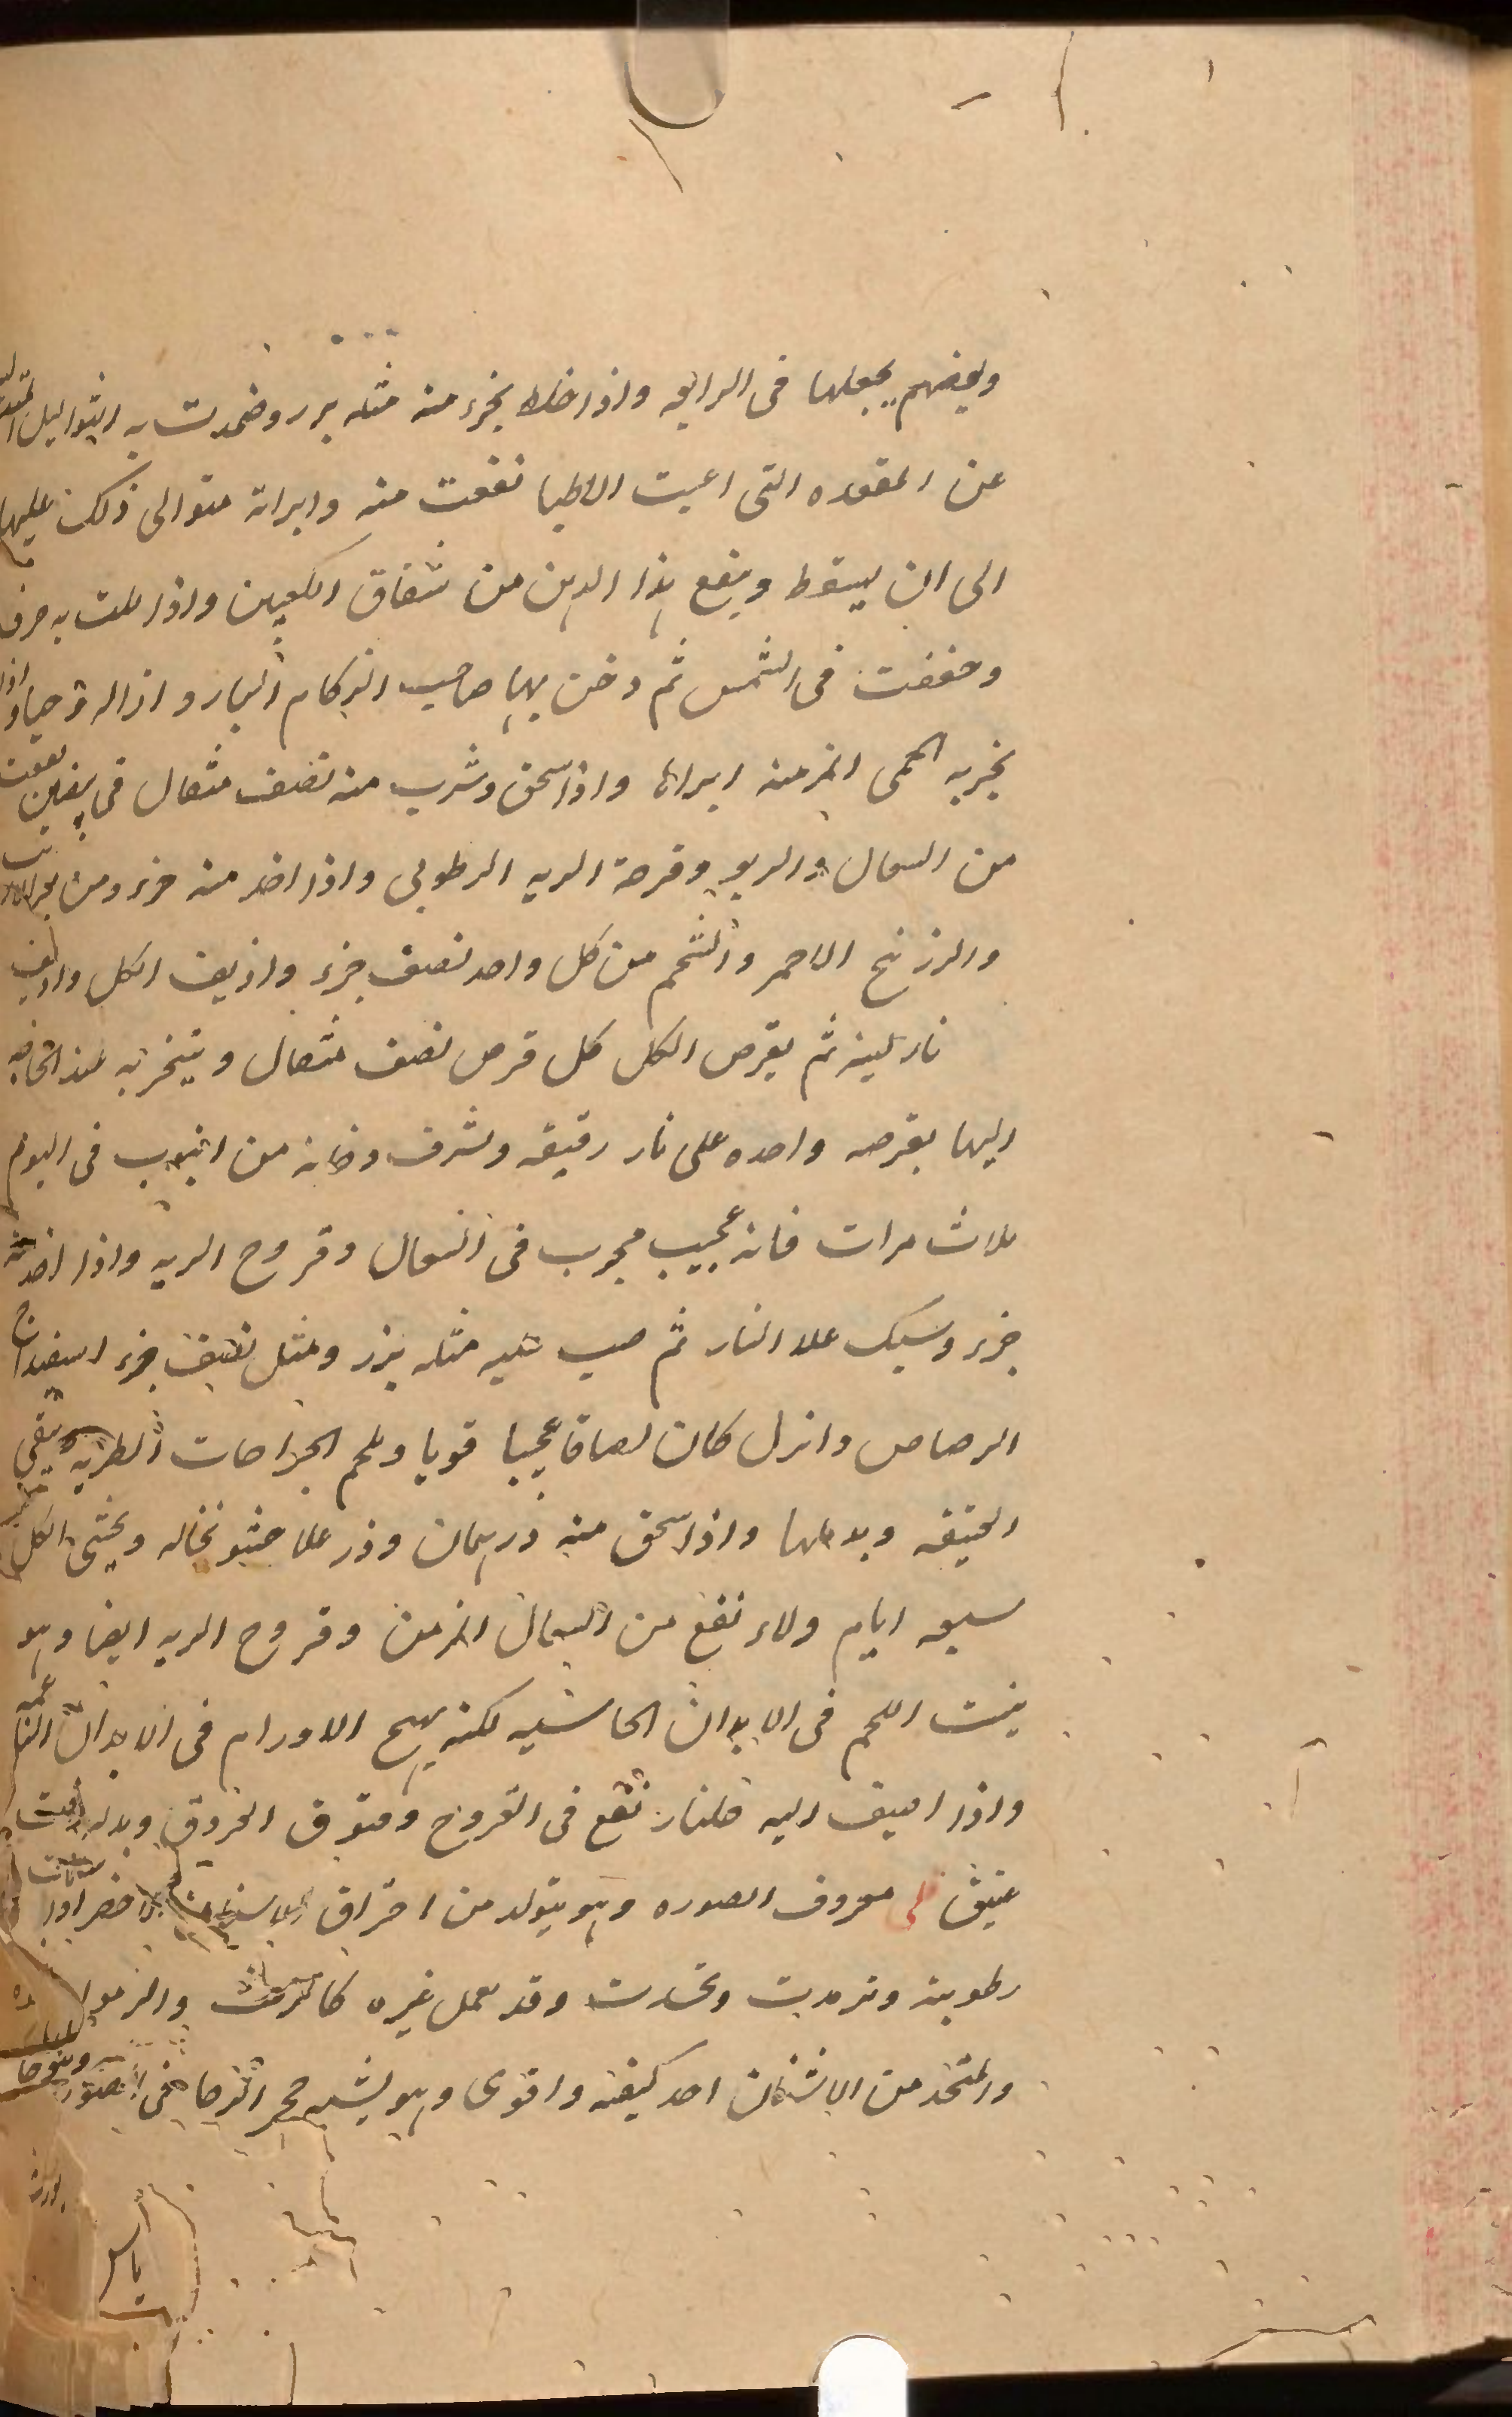 وبعضهم يجعلها فى الرابعه واذا خلط بجزء منه مثله بزر وضمدت به الثواليل
عن المقعده التى اعيت الاطبا نفعت منه وابراته متوالى ذلك عليها
الى ان يسقط وينفع هذا الدهن من شقاق الكعبين واذا بلت به خرق
وجففت فى الشمس ثم دخن بها صاحب الزكام البارد ازاله وحيا واذا
بخر به الحمى المزمنه ابراها واذا سحق وشرب منه نصف مثقال فى بيضتين نفعت
من السعال والربو وقرحة الريه الرطوبى واذا اخذ منه جزء ومن
والزرنيخ الاحمر والشحم من كل واحد نصف جزء واذيف الكل
نار لينه ثم يقرص الكل كل قرص نصف مثقال ويتبخر به عند الحاجه
اليها بقرصه واحده على نار رقيقه ويشرف دخانه من انبوب فى اليوم
ثلاث مرات فانه عجيب مجرب فى السعال وقروح الريه واذا اخذ منه
جزء وسبك علا النار ثم صب عليه مثله بزر ومثل نصف جزء اسفيداج
الرصاص وانزل كان لصاقا عجيبا قويا ويلحم الجراحات الطريه وينقى
العتيقه ويدملها واذا سحق منه درهمان وذر علا حشو نخاله ويحتسى الكل
سبعه ايام ولاء نفع من السعال المزمن وقروح الريه ايضا وهو
ينبت اللحم فى الابدان الجاسيه لكنه يهيج الاورام فى الابدان الناعمه
واذا اضيف اليه جلنار نفع فى القروح وفتوق العروق وبدله زفت
عتيق قلى معروف الصوره وهو يتولد من احتراق الاشنان الاخضر اذا
رطوبته وترمدت وتحدرت وقد يعمل غيره كالرمث والرمرام
والمتخذ من الاشنان احد كيفيه واقوى وهو يشبه حجر الرحا فى الصوره